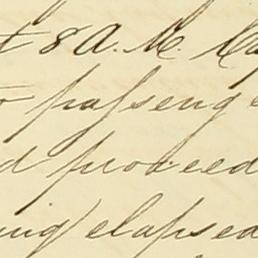 8 A. M. Ca
to passenge
d proceed
ing elapsed